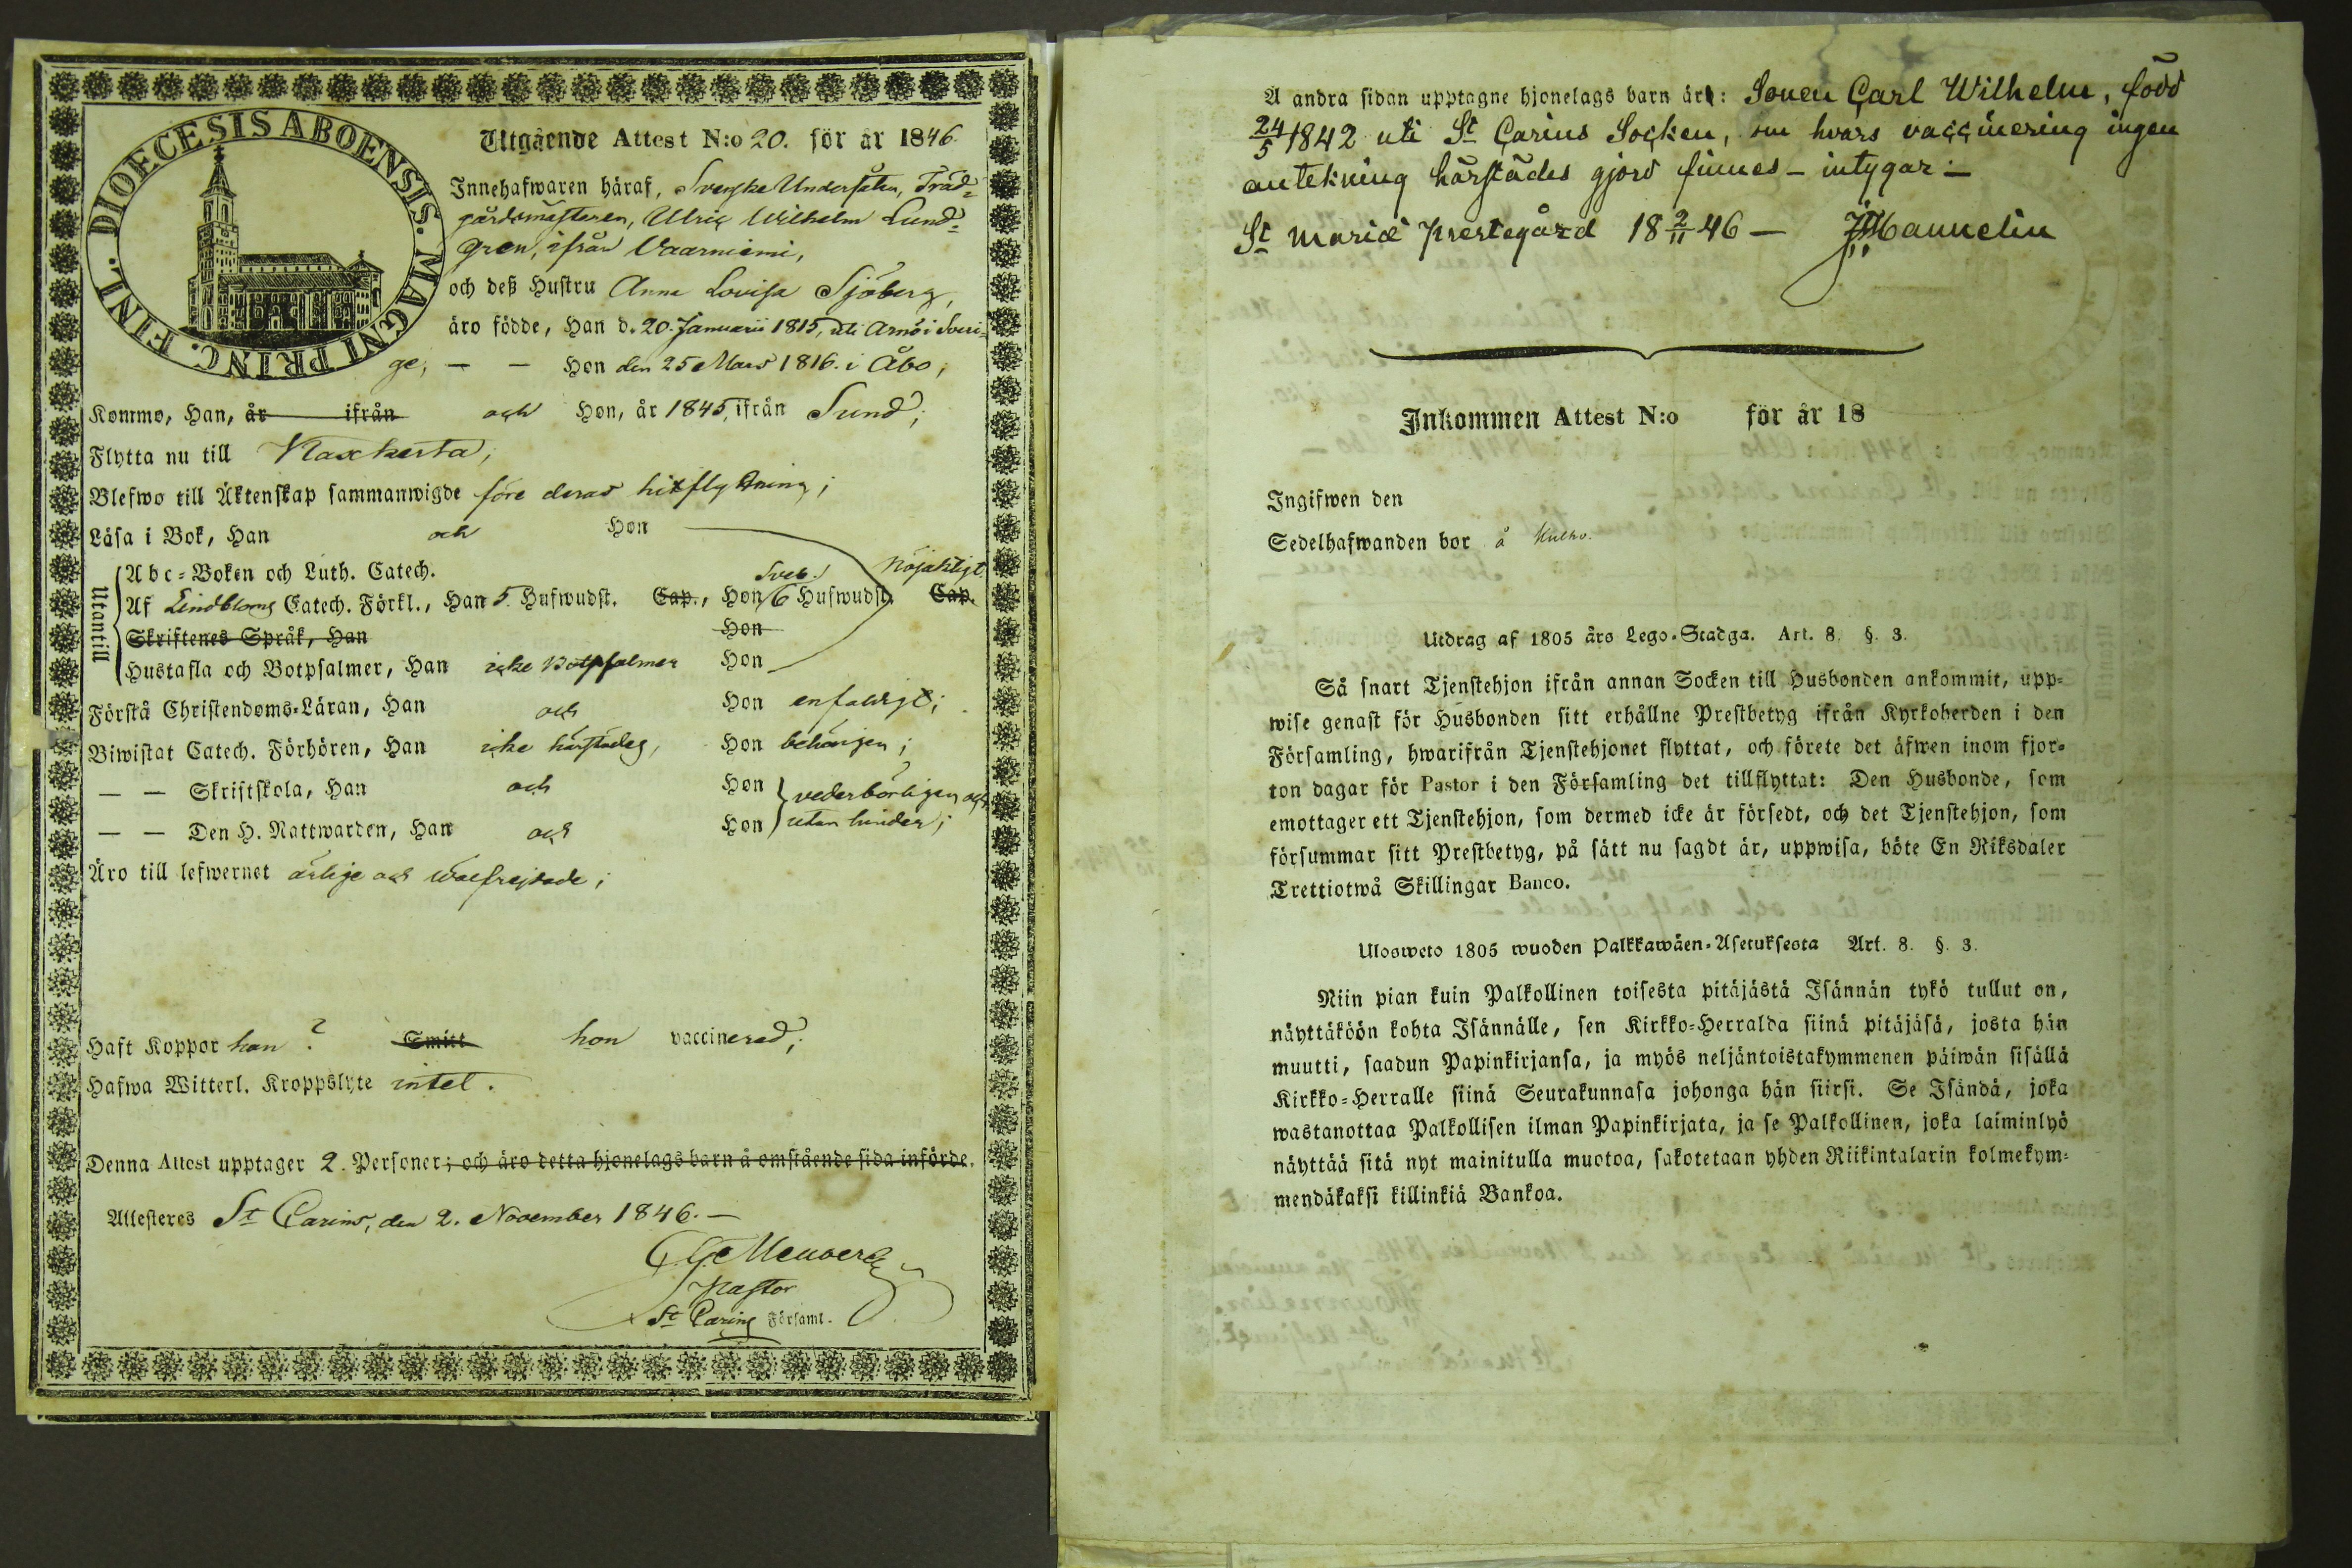 DIOECESIS ABOENSIS. MAGNI PRINC. FINL.
Utgående Attest N:o 20. för år 1846.
Innehafwaren häraf, Svenske Undersåten, Träd-
gårdsmästeren, Ulric Wilhelm Lund-
gren, ifrån Vaarniemi,
och deß Hustru Anna Lovisa Sjöberg,
äro födde, Han d. 20. Januarii 1815, uti Arnö i Sveri-
ge, — — Hon den 25 Mars 1816. i Åbo;
Kommo, Han, år ifrån och Hon, år 1845, ifrån Sund;
Flytta nu till Maxkerta;
Blefwo till Äktenskap sammanwigde före deras hitflyttning;
Läsa i Bok, Han och Hon
Utantill
Abc-Boken och Luth. Catech. Sveb. Nöjaktigt
Af Lindbloms Catech. Förkl., Han 5. Hufwudst. Cap., Hon 6 Hufwudst. Cap.
Skriftenes Språk, Han Hon
Hustafla och Botpsalmer, Han icke Botpsalmer Hon
Förstå Christendoms-Läran, Han och Hon enfaldigt;
Biwistat Catech. Förhören, Han icke härstädes, Hon behörigen;
— — Skriftskola, Han och Hon vederbörligen och
— — Den H. Nattwarden, Han och Hon utan hinder;
Äro till lefwernet ärlige och wälfrejdade;
Haft Koppor han ? Smitt hon vaccinerad;
Hafwa Witterl. Kroppslyte intet.
Denna Attest upptager 2. Personer; och äro detta hjonelags barn å omstående sida införde.
Attesteras St Carins, den 2. November 1846. —
Pastor
St Carins Församl.
Å andra sidan upptagne hjonelags barn är: Sonen Carl Wilhelm, född
24/5 1842 uti St Carins Socken, om hvars vaccinering ingen
antekning härstädes gjord finnes — intygar: —
St Mariæ Prestegård 18 2/11 46 — Mannelin
Inkommen Attest N:o för år 18
Ingifwen den
Sedelhafwanden bor å
Utdrag af 1805 års Lego-Stadga. Art. 8. §. 3.
Så snart Tjenstehjon ifrån annan Socken till Husbonden ankommit, upp-
wise genast för Husbonden sitt erhållne Prestbetyg ifrån Kyrkoherden i den
Församling, hwarifrån Tjenstehjonet flyttat, och förete det äfwen inom fjor-
ton dagar för Pastor i den Församling det tillflyttat: Den Husbonde, som
emottager ett Tjenstehjon, som dermed icke är försedt, och det Tjenstehjon, som
försummar sitt Prestbetyg, på sätt nu sagdt är, uppwisa, böte En Riksdaler
Trettiotwå Skillingar Banco.
Ulosweto 1805 wuoden Palkkawäen-Asetuksesta Art. 8. §. 3.
Niin pian kuin Palkollinen toisesta pitäjästä Isännän tykö tullut on,
näyttäköön kohta Isännälle, sen Kirkko-Herralda siinä pitäjäsä, josta hän
muutti, saadun Papinkirjansa, ja myös neljäntoistakymmenen päiwän sisällä
Kirkko-Herralle siinä Seurakunnasa johonga hän siirsi. Se Isändä, joka
wastanottaa Palkollisen ilman Papinkirjata, ja se Palkollinen, joka laiminlyö
näyttää sitä nyt mainitulla muotoa, sakotetaan yhden Riikintalarin kolmekym-
mendäkaksi killinkiä Bankoa.